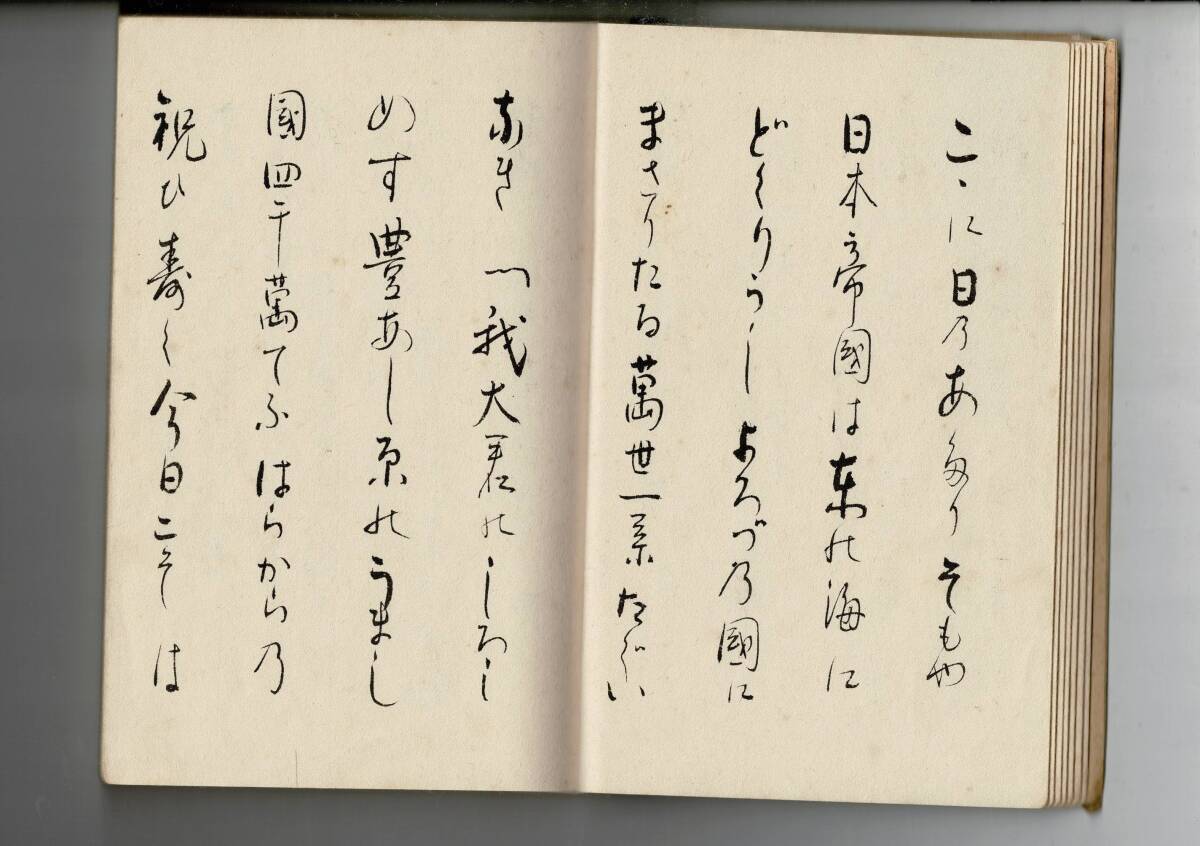 こゝに日のあたりそもや
日本帝國は東の海に
どくりうしよろづの國に
まさりたる萬世一系たぐい
なき 〽我大君のしろし
めす豊あし原のうまし
國四千萬てふはらからの
祝ひ壽く今日こそは